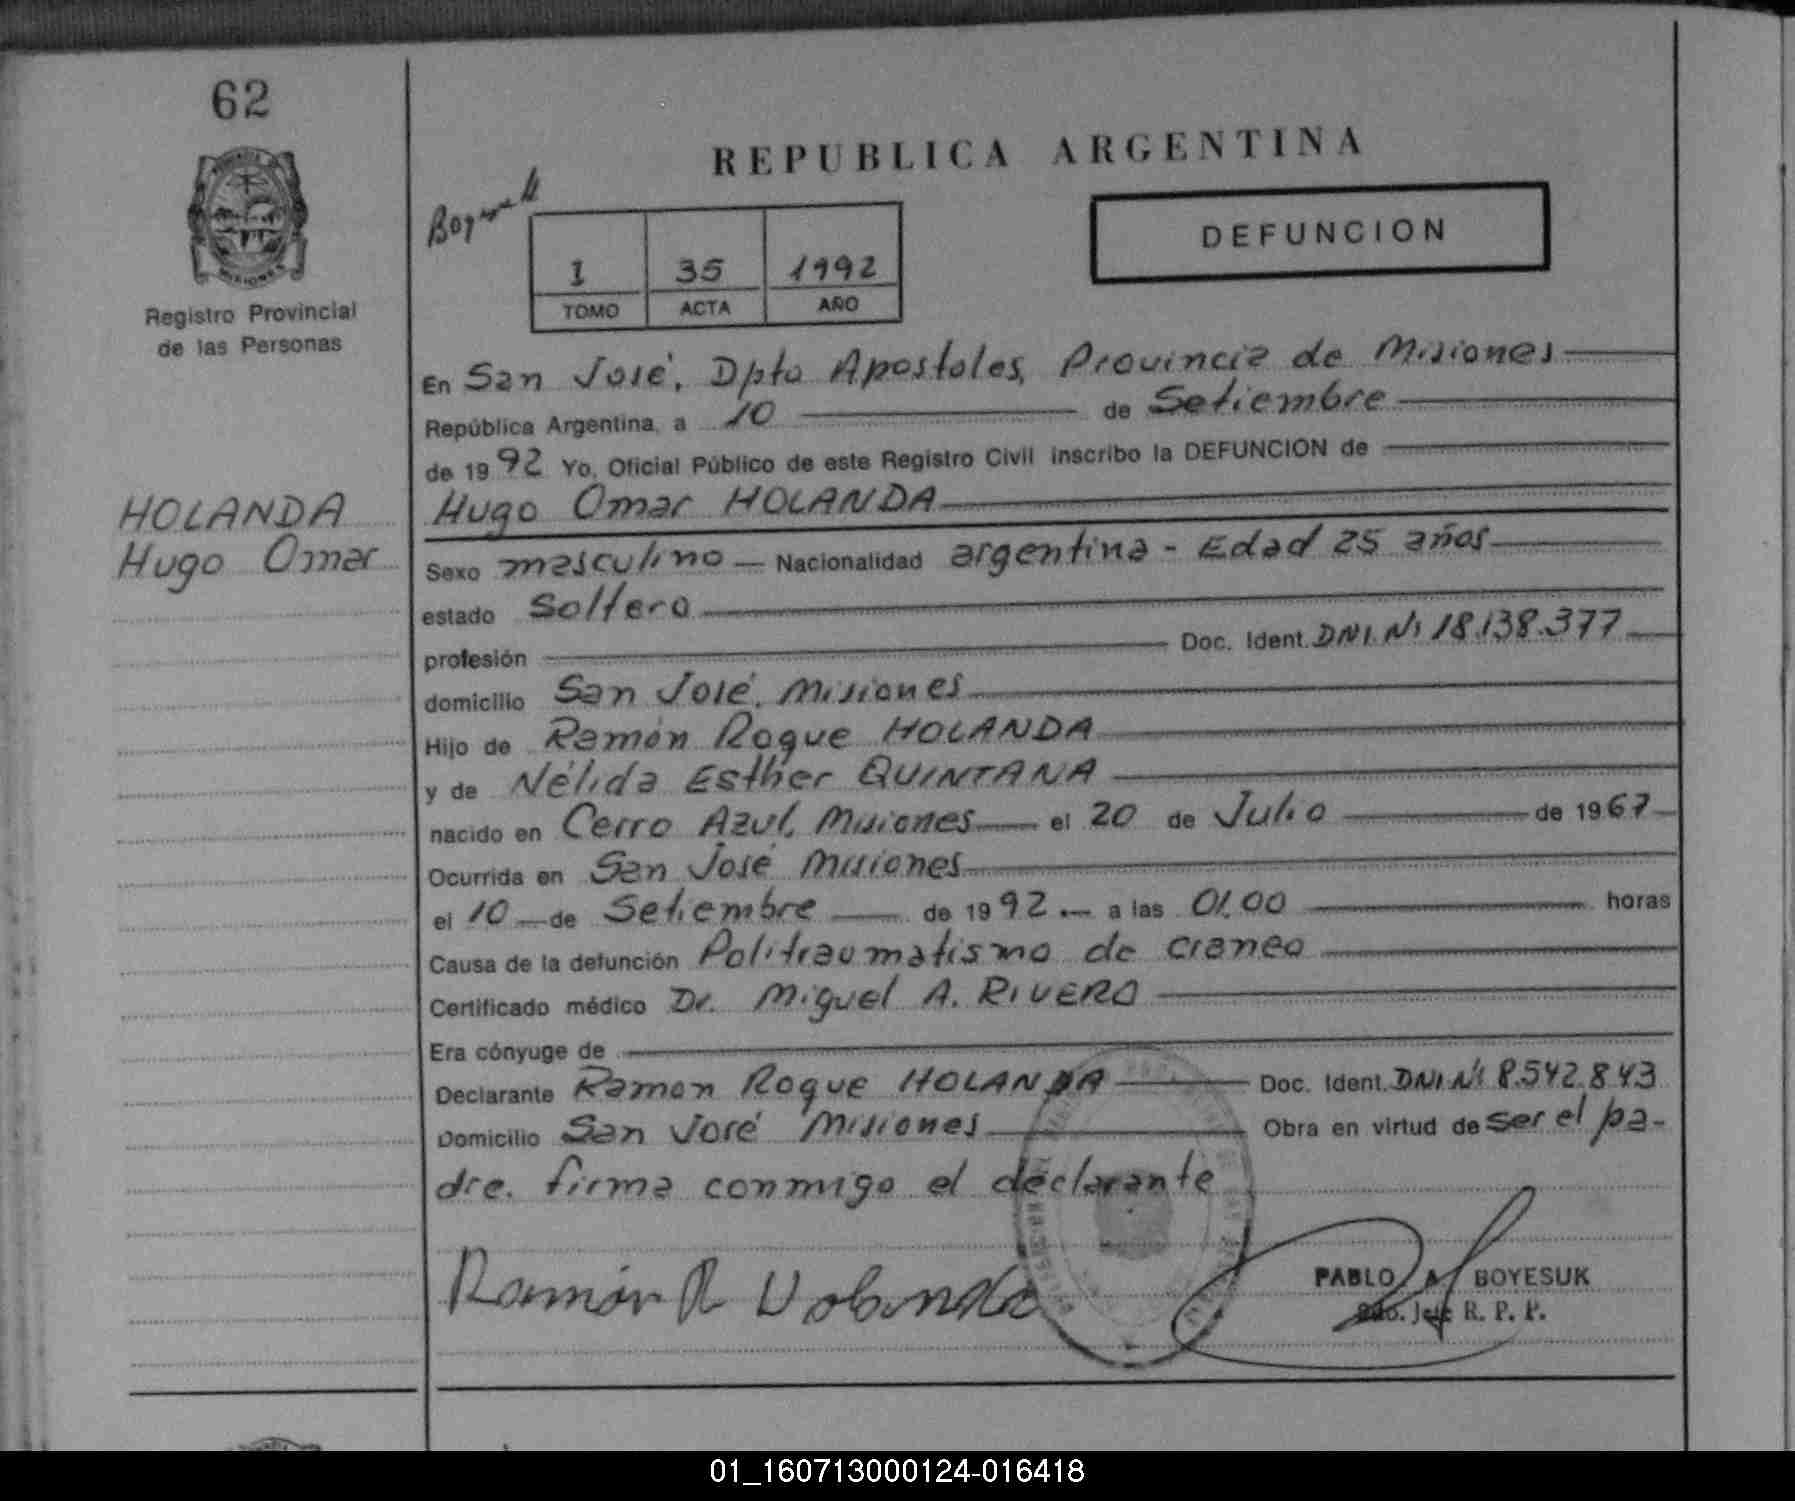 62
REPUBLICA ARGENTINA
DEFUNCION
1 35 1992
TOMO ACTA AÑO
Registro Provincial
de las Personas
MISIONES
En San José, Dpto Apostoles, Provincia de Misiones
República Argentina, a 10 de Setiembre
de 1992 Yo, Oficial Público de este Registro Civil inscribo la DEFUNCION de
HOLANDA
Hugo Omar
Hugo Omar HOLANDA
Sexo masculino Nacionalidad argentina - Edad 25 años
estado Soltero
profesión Doc. Ident. DNI. Nº 18.138.377
domicilio San José, Misiones
Hijo de Ramón Roque HOLANDA
y de Nélida Esther QUINTANA
nacido en Cerro Azul, Misiones el 20 de Julio de 1967
Ocurrida en San José Misiones
el 10 de Setiembre de 1992 a las 01.00 horas
Causa de la defunción Politraumatismo de craneo
Certificado médico Dr. Miguel A. RIVERO
Era cónyuge de
Declarante Ramon Roque HOLANDA Doc. Ident. DNI Nº 8.542.843
Domicilio San José Misiones Obra en virtud de ser el pa-
dre. firma conmigo el declarante
Ramón R Holanda
PABLO A. BOYESUK
Jefe R. P. P.
01_160713000124-016418